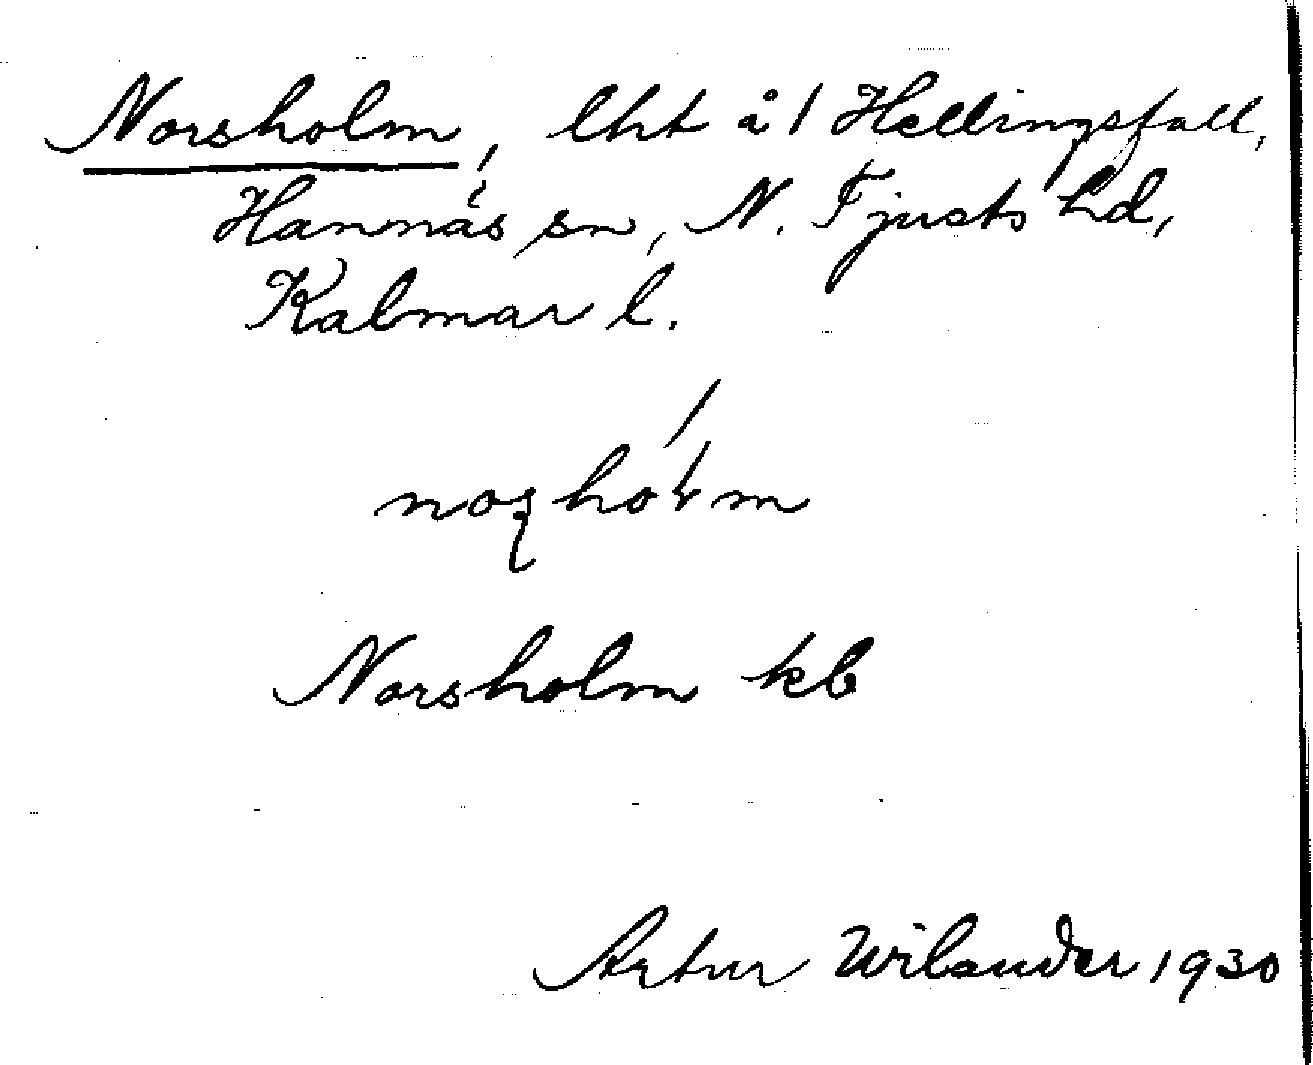 Norsholm, lht å 1 Hellingsfall,
Hannäs sn, N. Tjusts hd,
Kalmar l.
Norsholm kb
Artur Wilander 1930